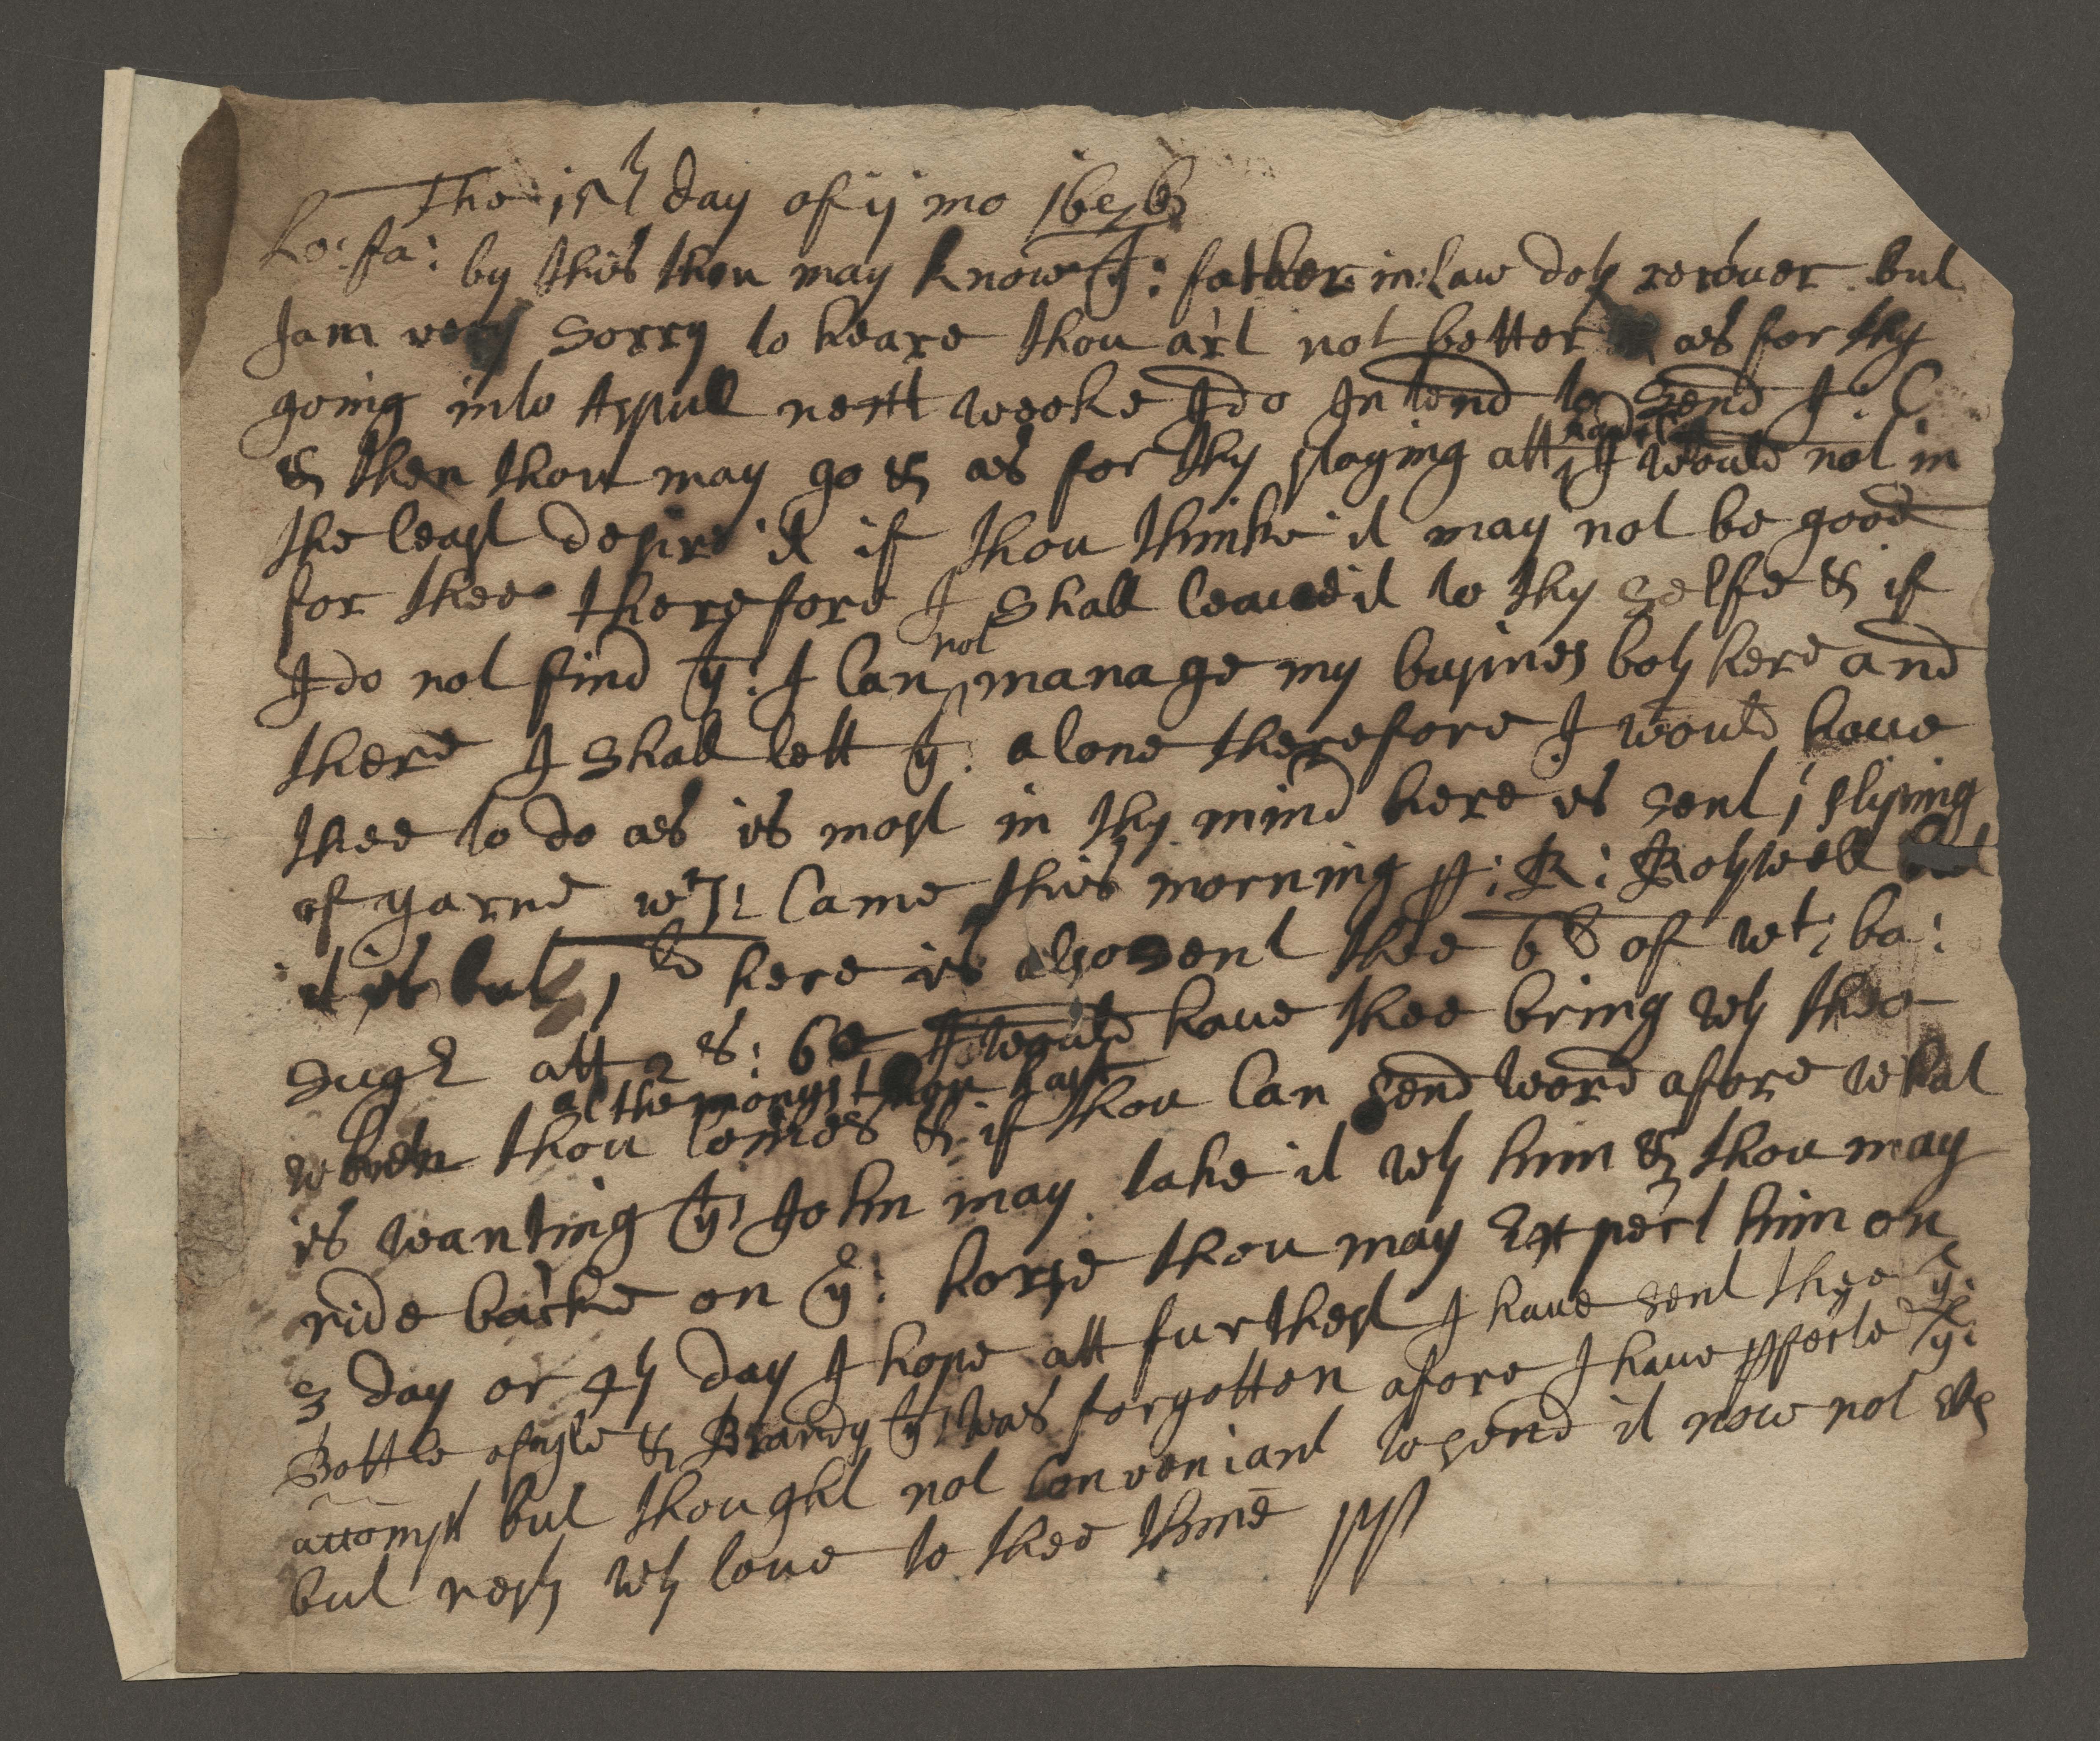 The 15th day of ij mo
Lo: fa: by this thou may know yt: father in:law doth recover but
I am very sorry to heare thou art not better as for thy
going into Aspull next weeke I do Intend to send J: C
& then thou may go & as for thy staying att I would not in
the least desire it if thou thinke it may not be good
for thee therefore I shall leave it to thy selfe & if
I do not find yt: I Can not manage my busines both here and
there I shall lett yt: alone therefore I would have
thee to do as is most in thy mind here is sent 1 sliping
of yarne wch Came this morning p: R: Rothwell
it is but 1 lb here is also sent thee 6 lb of wt: ba:
sugr att 2 s: 6d I would have thee bring wth thee
al the monys thou hast
when thou Comes & if thou Can send word afore what
is wanting yt: John may take it wth him & thou may
ride backe on ye: horse thou may Expect him on
3 day or 4th day I hope att furthest I have sent thee ye:
Bottle & Brandy yt: was forgotten afore I have pfecte ye:
attompt but thought not Conveniant to send it now not
but rests wth love to thee thine